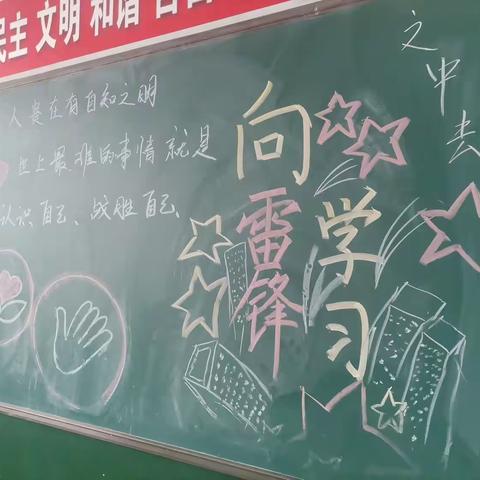 民主 文明 和谐 自由
人贵在有自知之明
世上最难的事情就是
认识自己、战胜自己、
向
雷锋
学习
之中去